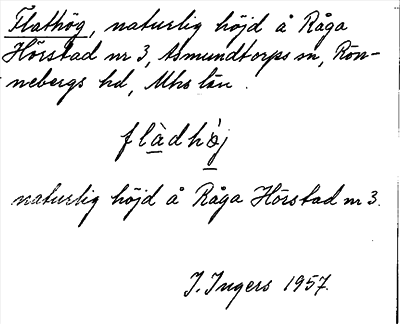 Flathög, naturlig höjd å Råga
Hörstad nr 3, Asmundtorps sn, Rön-
nebergs hd, Mhs län.
flàdhöj
naturlig höjd å Råga Hörstad nr 3.
I. Ingers 1957.